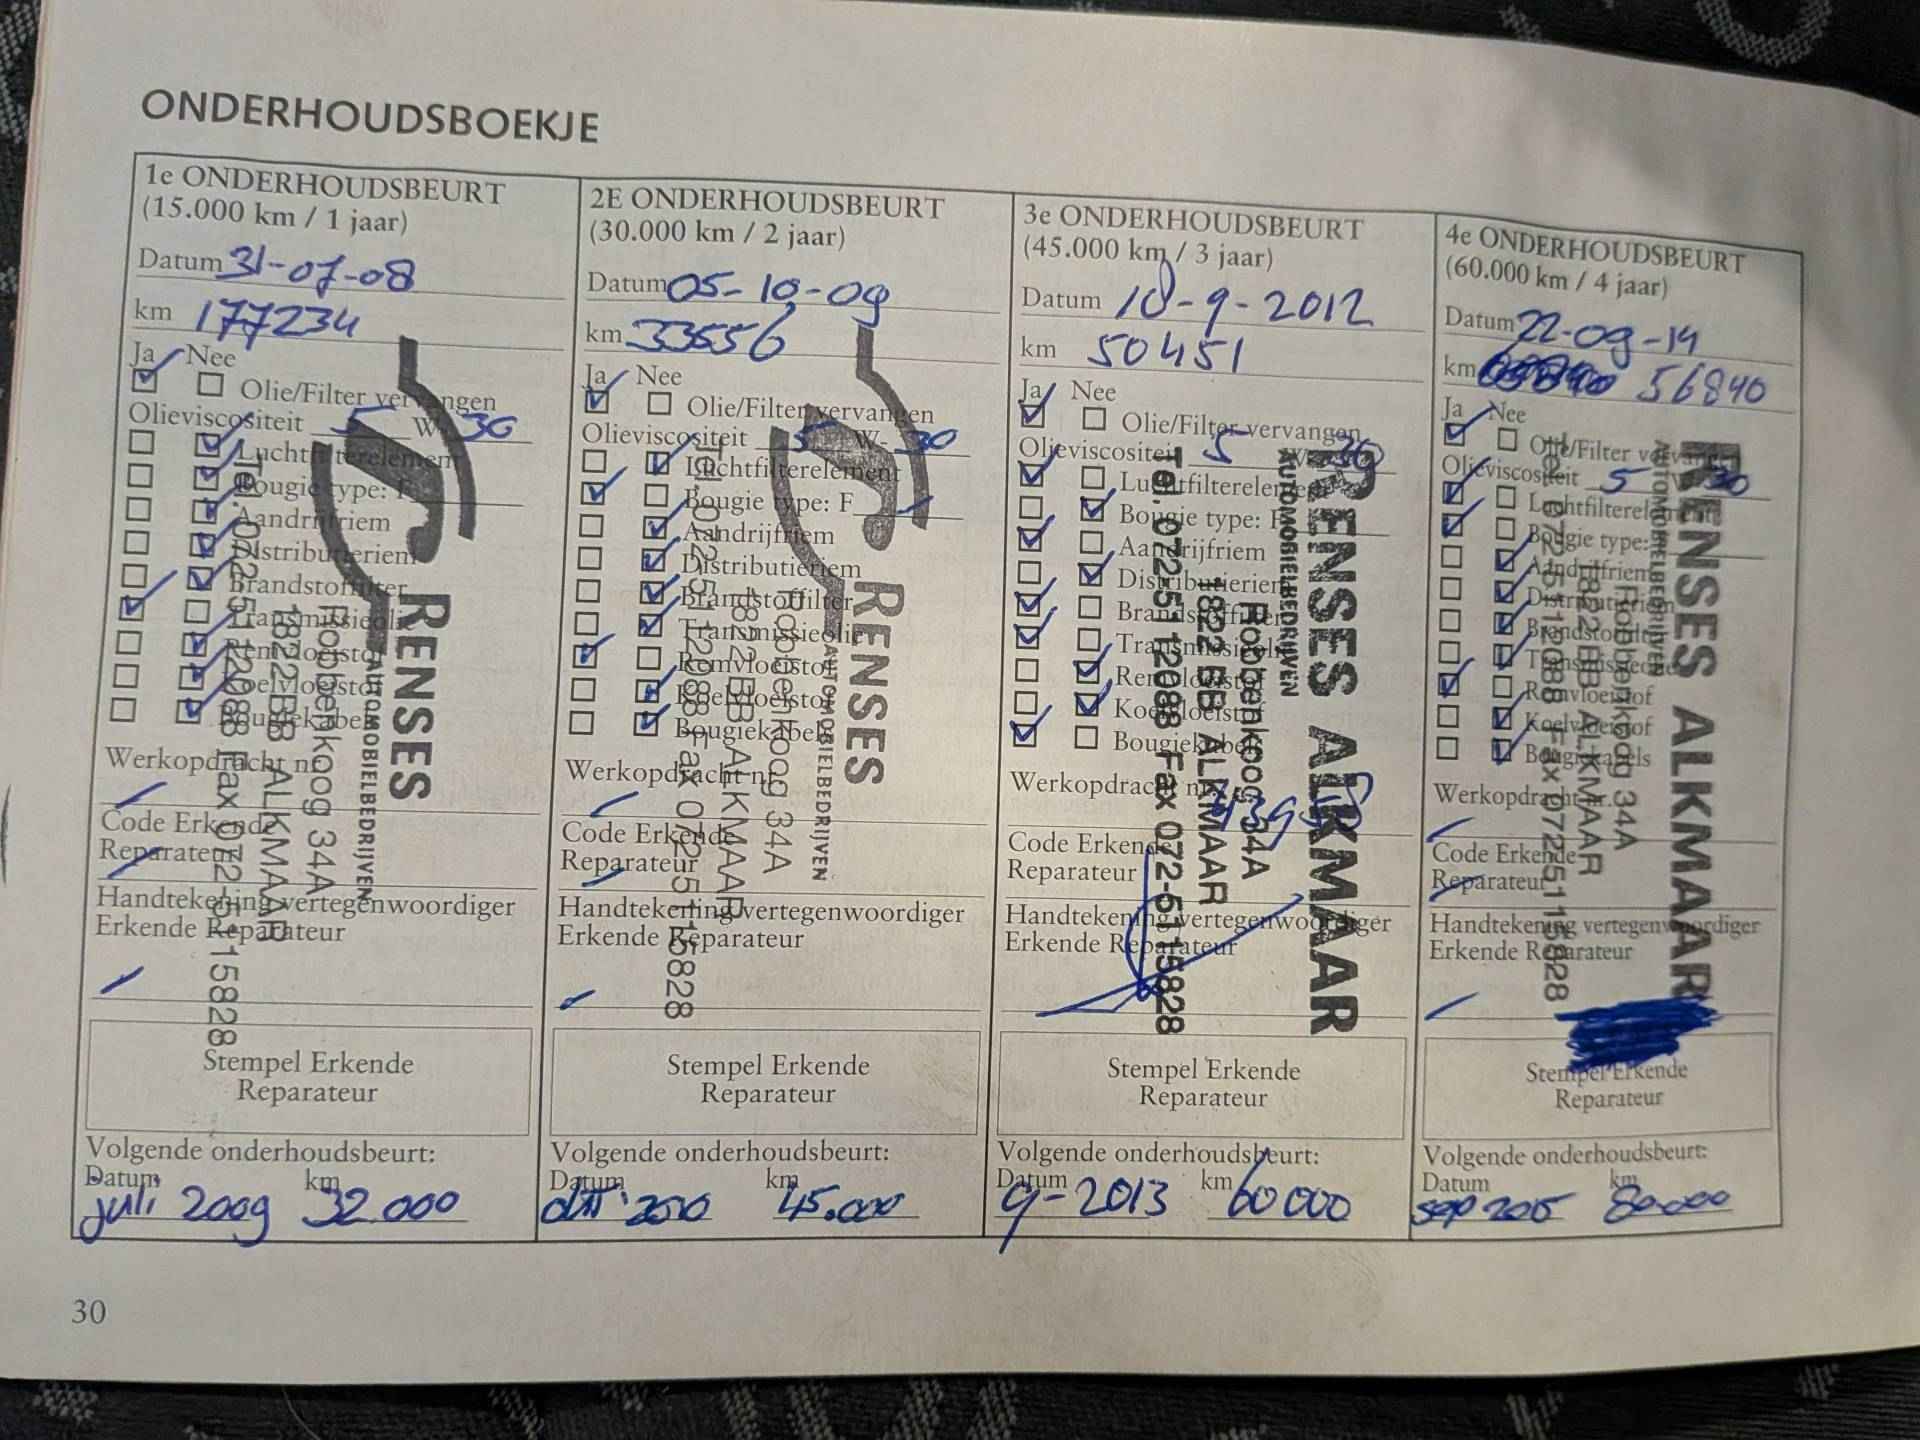 ONDERHOUDSBOEKJE
1e ONDERHOUDSBEURT
(15.000 km / 1 jaar)
Datum 31-07-08
km 177234
Ja Nee
Olie/Filter vervangen
Olieviscositeit 5 W- 30
Luchtfilterelement
Bougie type: F
Aandrijfriem
Distributieriem
Brandstoffilter
Transmissieolie
Remvloeistof
Koelvloeistof
Bougiekabels
Werkopdracht nr.
Code Erkende
Reparateur
Handtekening vertegenwoordiger
Erkende Reparateur
RENSES
AUTOMOBIELBEDRIJVEN
Robbenkoog 34A
1822 BB ALKMAAR
Tel. 072-5112088 Fax 072-5115828
Stempel Erkende
Reparateur
Volgende onderhoudsbeurt:
Datum km
juli 2009 32.000
2E ONDERHOUDSBEURT
(30.000 km / 2 jaar)
Datum 05-10-09
km 33556
Ja Nee
Olie/Filter vervangen
Olieviscositeit 5 W- 30
Luchtfilterelement
Bougie type: F
Aandrijfriem
Distributieriem
Brandstoffilter
Transmissieolie
Remvloeistof
Koelvloeistof
Bougiekabels
Werkopdracht nr.
Code Erkende
Reparateur
Handtekening vertegenwoordiger
Erkende Reparateur
RENSES
AUTOMOBIELBEDRIJVEN
Robbenkoog 34A
1822 BB ALKMAAR
Tel. 072-5112088 Fax 072-5115828
Stempel Erkende
Reparateur
Volgende onderhoudsbeurt:
Datum km
2010 45.000
3e ONDERHOUDSBEURT
(45.000 km / 3 jaar)
Datum 18-9-2012
km 50451
Ja Nee
Olie/Filter vervangen
Olieviscositeit 5 W- 30
Luchtfilterelement
Bougie type: F
Aandrijfriem
Distributieriem
Brandstoffilter
Transmissieolie
Remvloeistof
Koelvloeistof
Bougiekabels
Werkopdracht nr.
Code Erkende
Reparateur
Handtekening vertegenwoordiger
Erkende Reparateur
RENSES ALKMAAR
AUTOMOBIELBEDRIJVEN
Robbenkoog 34A
1822 BB ALKMAAR
Tel. 072-5112088 Fax 072-5115828
Stempel Erkende
Reparateur
Volgende onderhoudsbeurt:
Datum km
9-2013 60000
4e ONDERHOUDSBEURT
(60.000 km / 4 jaar)
Datum 22-09-14
km 56840
Ja Nee
Olie/Filter vervangen
Olieviscositeit 5 W 30
Luchtfilterelement
Bougie type:
Aandrijfriem
Distributieriem
Brandstoffilter
Transmissieolie
Remvloeistof
Koelvloeistof
Bougiekabels
Werkopdracht nr.
Code Erkende
Reparateur
Handtekening vertegenwoordiger
Erkende Reparateur
RENSES ALKMAAR
AUTOMOBIELBEDRIJVEN
Robbenkoog 34A
1822 BB ALKMAAR
Tel. 072-5112088 Fax 072-5115828
Stempel Erkende
Reparateur
Volgende onderhoudsbeurt:
Datum km
sep 2015 80.000
30